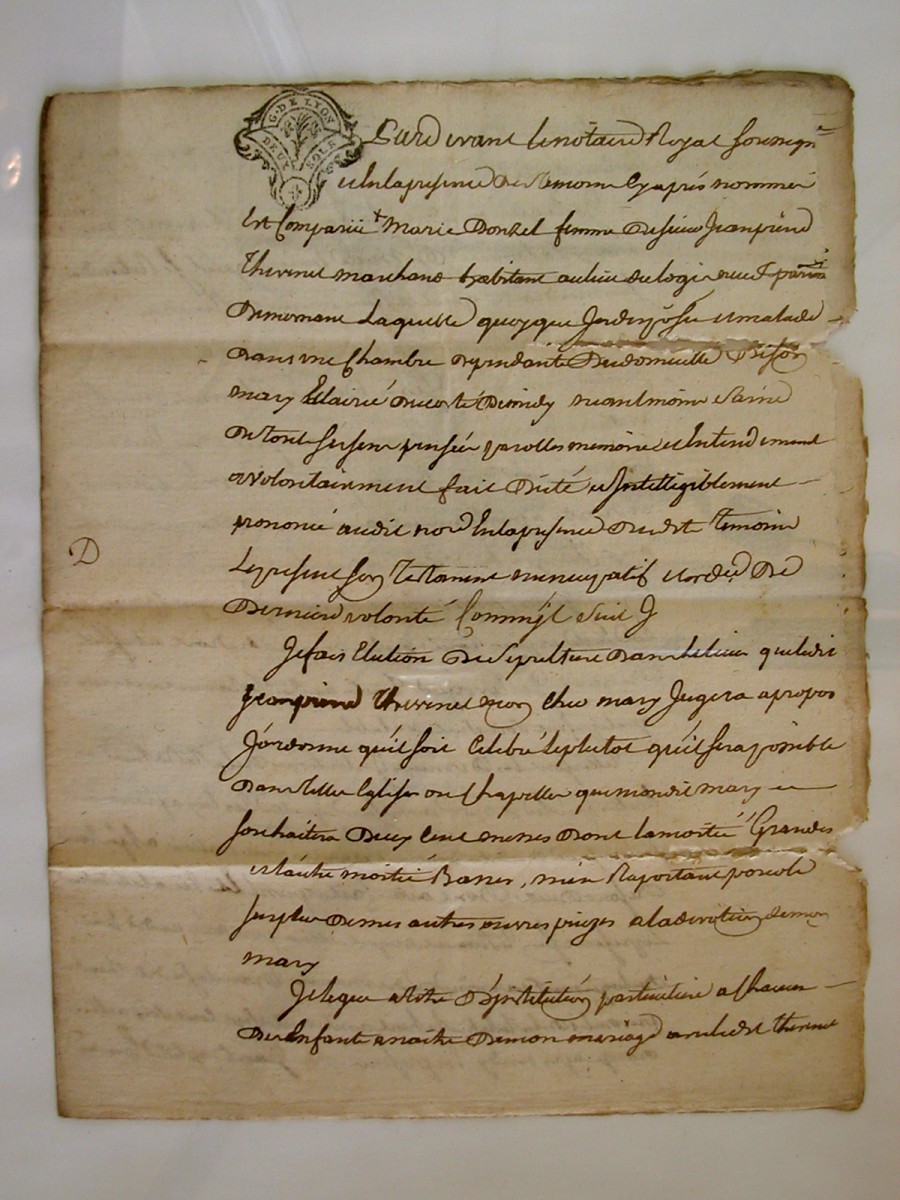 G. DE LYON
DEUX SOLS
Pardevant le notaire Royal soussigné
et En la presence des temoins Cy aprés nommés
Est Comparüe Marie Donzel femme de sieur Jean
Thevenet marchand habitant au lieu du logis neuf
de mornant Laquelle quoyque Jndisposée et malade
dans une Chambre dependante du domicille de son
mary Eclairée du coté de midy neantmoins Saine
de tous ses sens pensée parolles memoire et Entendement
a volontairement fait dicté et Jntelligiblement
prononcé audit no.re En la presence desdits temoins
Le present son testament nuncupatif et ordre de
derniere volonté Comm'jl suit
Je fais Election de Sepulture dans le lieu que ledit
Thevenet mon cher mary Jugera apropos
J'ordonne qu'il soit Celebré le plutot qu'il sera possible
dans telles Eglises ou Chapelles que mondit mary
souhaitera deux Cent messes dont la moitié Grandes
et l'autre moitié Basses, m'en Raportant
surplus de mes autres œuvres piezes a la devotion de mon
mary
Je legue a titre d'jnstitution particuliere a Chacun
des Enfants a naitre de mon mariage avec ledit thevenet
D